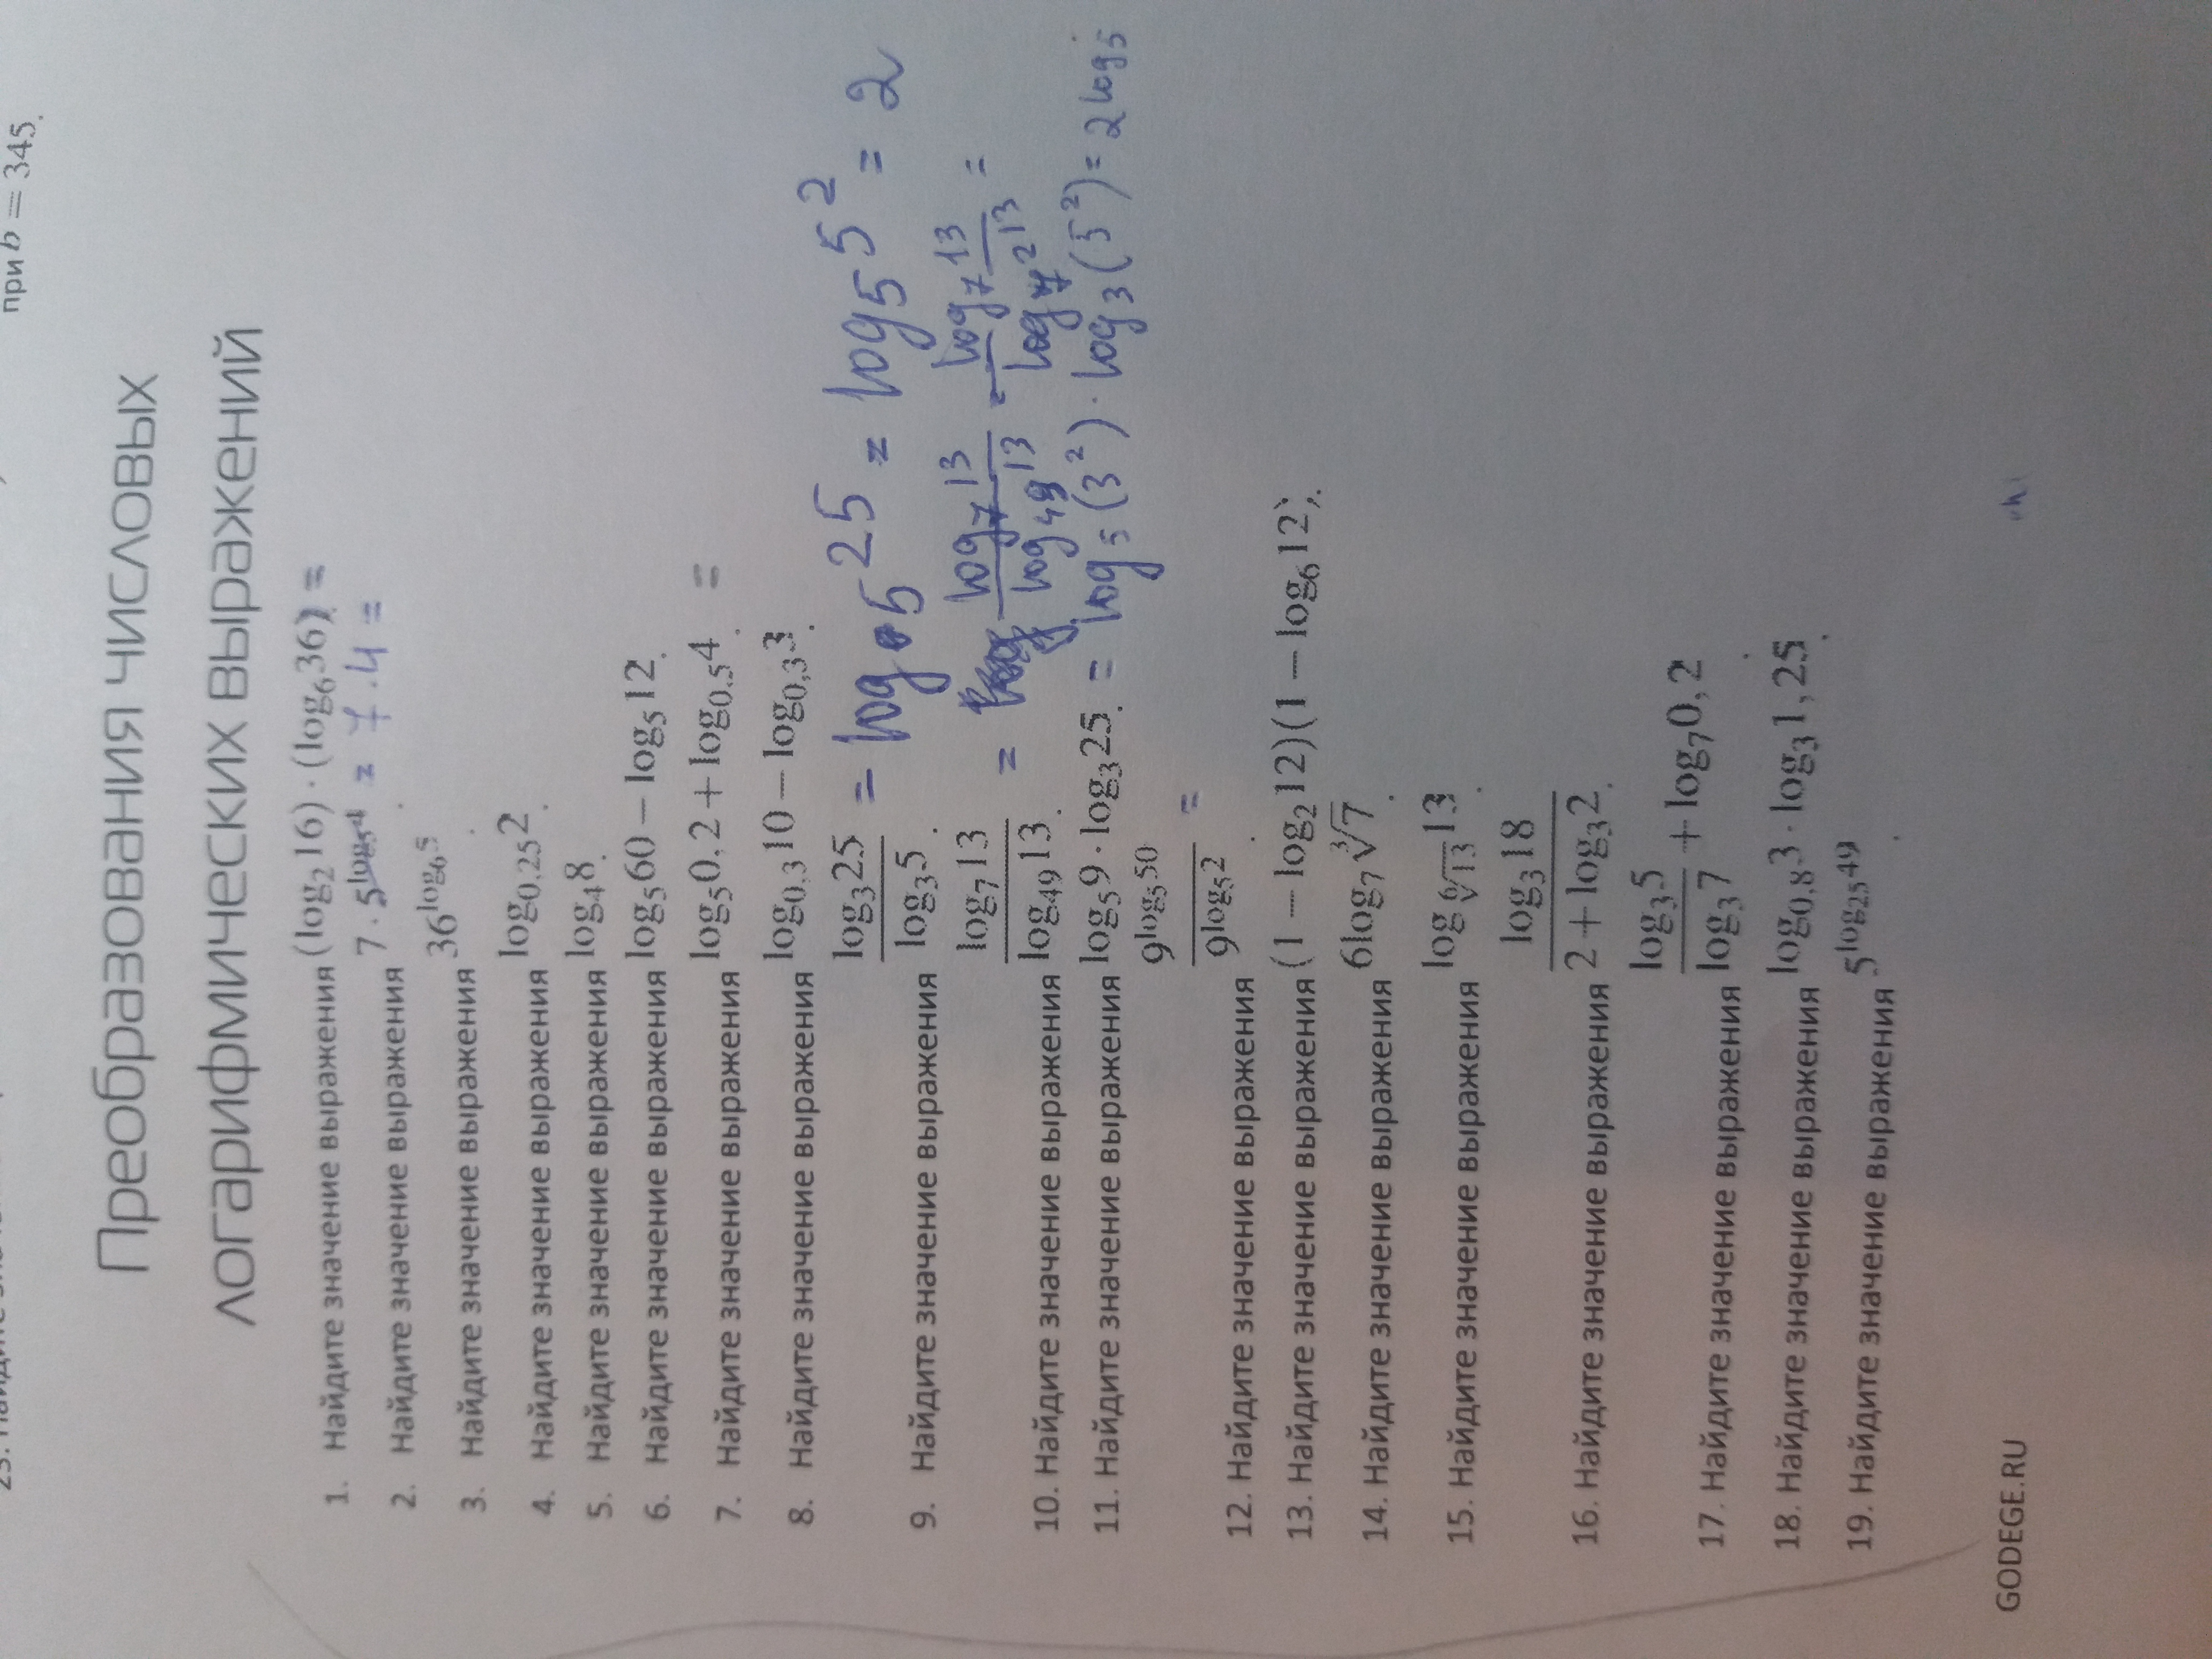 при b = 345.
Преобразования числовых
логарифмических выражений
1. Найдите значение выражения (log₂16) · (log₆36) =
2. Найдите значение выражения 7 · 5^(log₅4) = 7 · 4 =
3. Найдите значение выражения 36^(log₆5).
4. Найдите значение выражения log₀,₂₅2.
5. Найдите значение выражения log₄8.
6. Найдите значение выражения log₅60 − log₅12.
7. Найдите значение выражения log₅0,2 + log₀,₅4. =
8. Найдите значение выражения log₀,₃10 − log₀,₃3.
9. Найдите значение выражения log₃25 / log₃5. = log₅25 = log₅5² = 2
10. Найдите значение выражения log₇13 / log₄₉13. = log₇13 / log₄₉13 = log₇13 / log₇²13 =
11. Найдите значение выражения log₅9 · log₃25. = log₅(3²) · log₃(5²) = 2 log₅
12. Найдите значение выражения 9^(log₅50) / 9^(log₅2). =
13. Найдите значение выражения (1 − log₂12)(1 − log₆12).
14. Найдите значение выражения 6log₇∛7.
15. Найдите значение выражения log_(⁶√13)13.
16. Найдите значение выражения log₃18 / (2 + log₃2).
17. Найдите значение выражения log₃5 / log₃7 + log₇0,2.
18. Найдите значение выражения log₀,₈3 · log₃1,25.
19. Найдите значение выражения 5^(log₂₅49).
GODEGE.RU